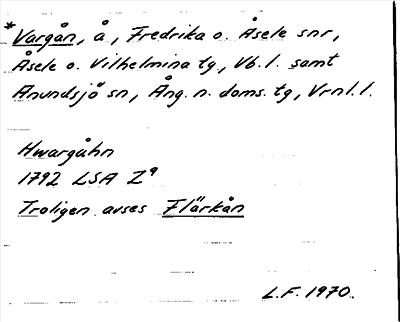 *Vargån, å, Fredrika o. Åsele snr,
Åsele o. Vilhelmina tg, Vb. l. samt
Anundsjö sn, Ång. n. doms. tg, Vrnl. l.
Hwargåhn
1792 LSA Z9
Troligen avses Flärkån
L.F. 1970.